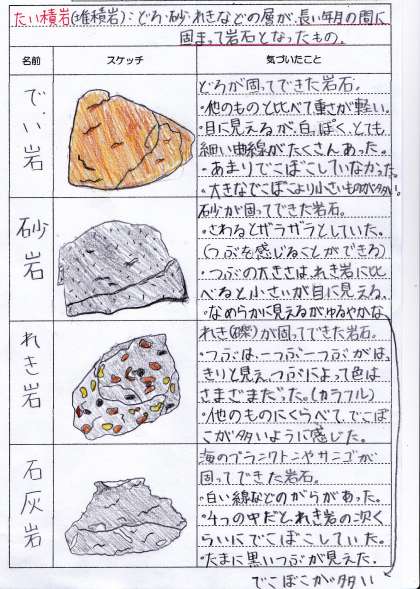 たい積岩(堆積岩):どろ・砂・れきなどの層が、長い年月の間に
固まって岩石となったもの。
名前 スケッチ 気づいたこと
でい岩
どろが固ってできた岩石。
・他のものと比べて重さが軽い。
・目に見えるが、白っぽく、とても
細い曲線がたくさんあった。
・あまりでこぼこしていなかった。
・大きなでこぼこより小さいものが多い。
砂岩
砂が固ってできた岩石。
・さわるとザラザラとしていた。
(つぶを感じることができる)
・つぶの大きさは、れき岩に比
べると小さいが目に見える。
・なめらかに見えるがゆるやかな
でこぼこが多い
れき岩
れき(礫)が固ってできた岩石。
・つぶは、一つぶ一つぶがは、
きりと見え、つぶによって色は
さまざまだった。(カラフル)
・他のものにくらべて、でこぼ
こが多いように感じた。
石灰岩
海のプランクトンやサンゴが
固ってできた岩石。
・白い線などのがらがあった。
・4つの中だと、れき岩の次く
らいにでこぼこしていた。
・たまに黒いつぶが見えた。